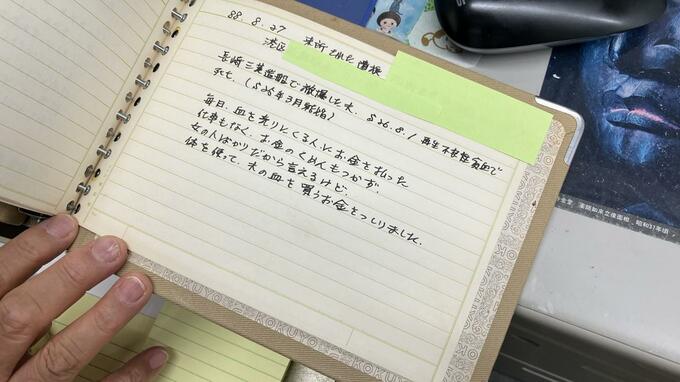 88. 8. 27 来所された
港区
長崎三菱造船で被爆した夫、S26.8.1 再生不良性貧血で
死亡。(S26年3月
毎日、血を売りにくる人にお金を払った
仕事もなく、お金のくめんもつかず、
女の人ばかりだから言えるけど、
体を使って、夫の血を買うお金をつくりました。
KOKUYO
薬師如来立像面相 昭和37年頃